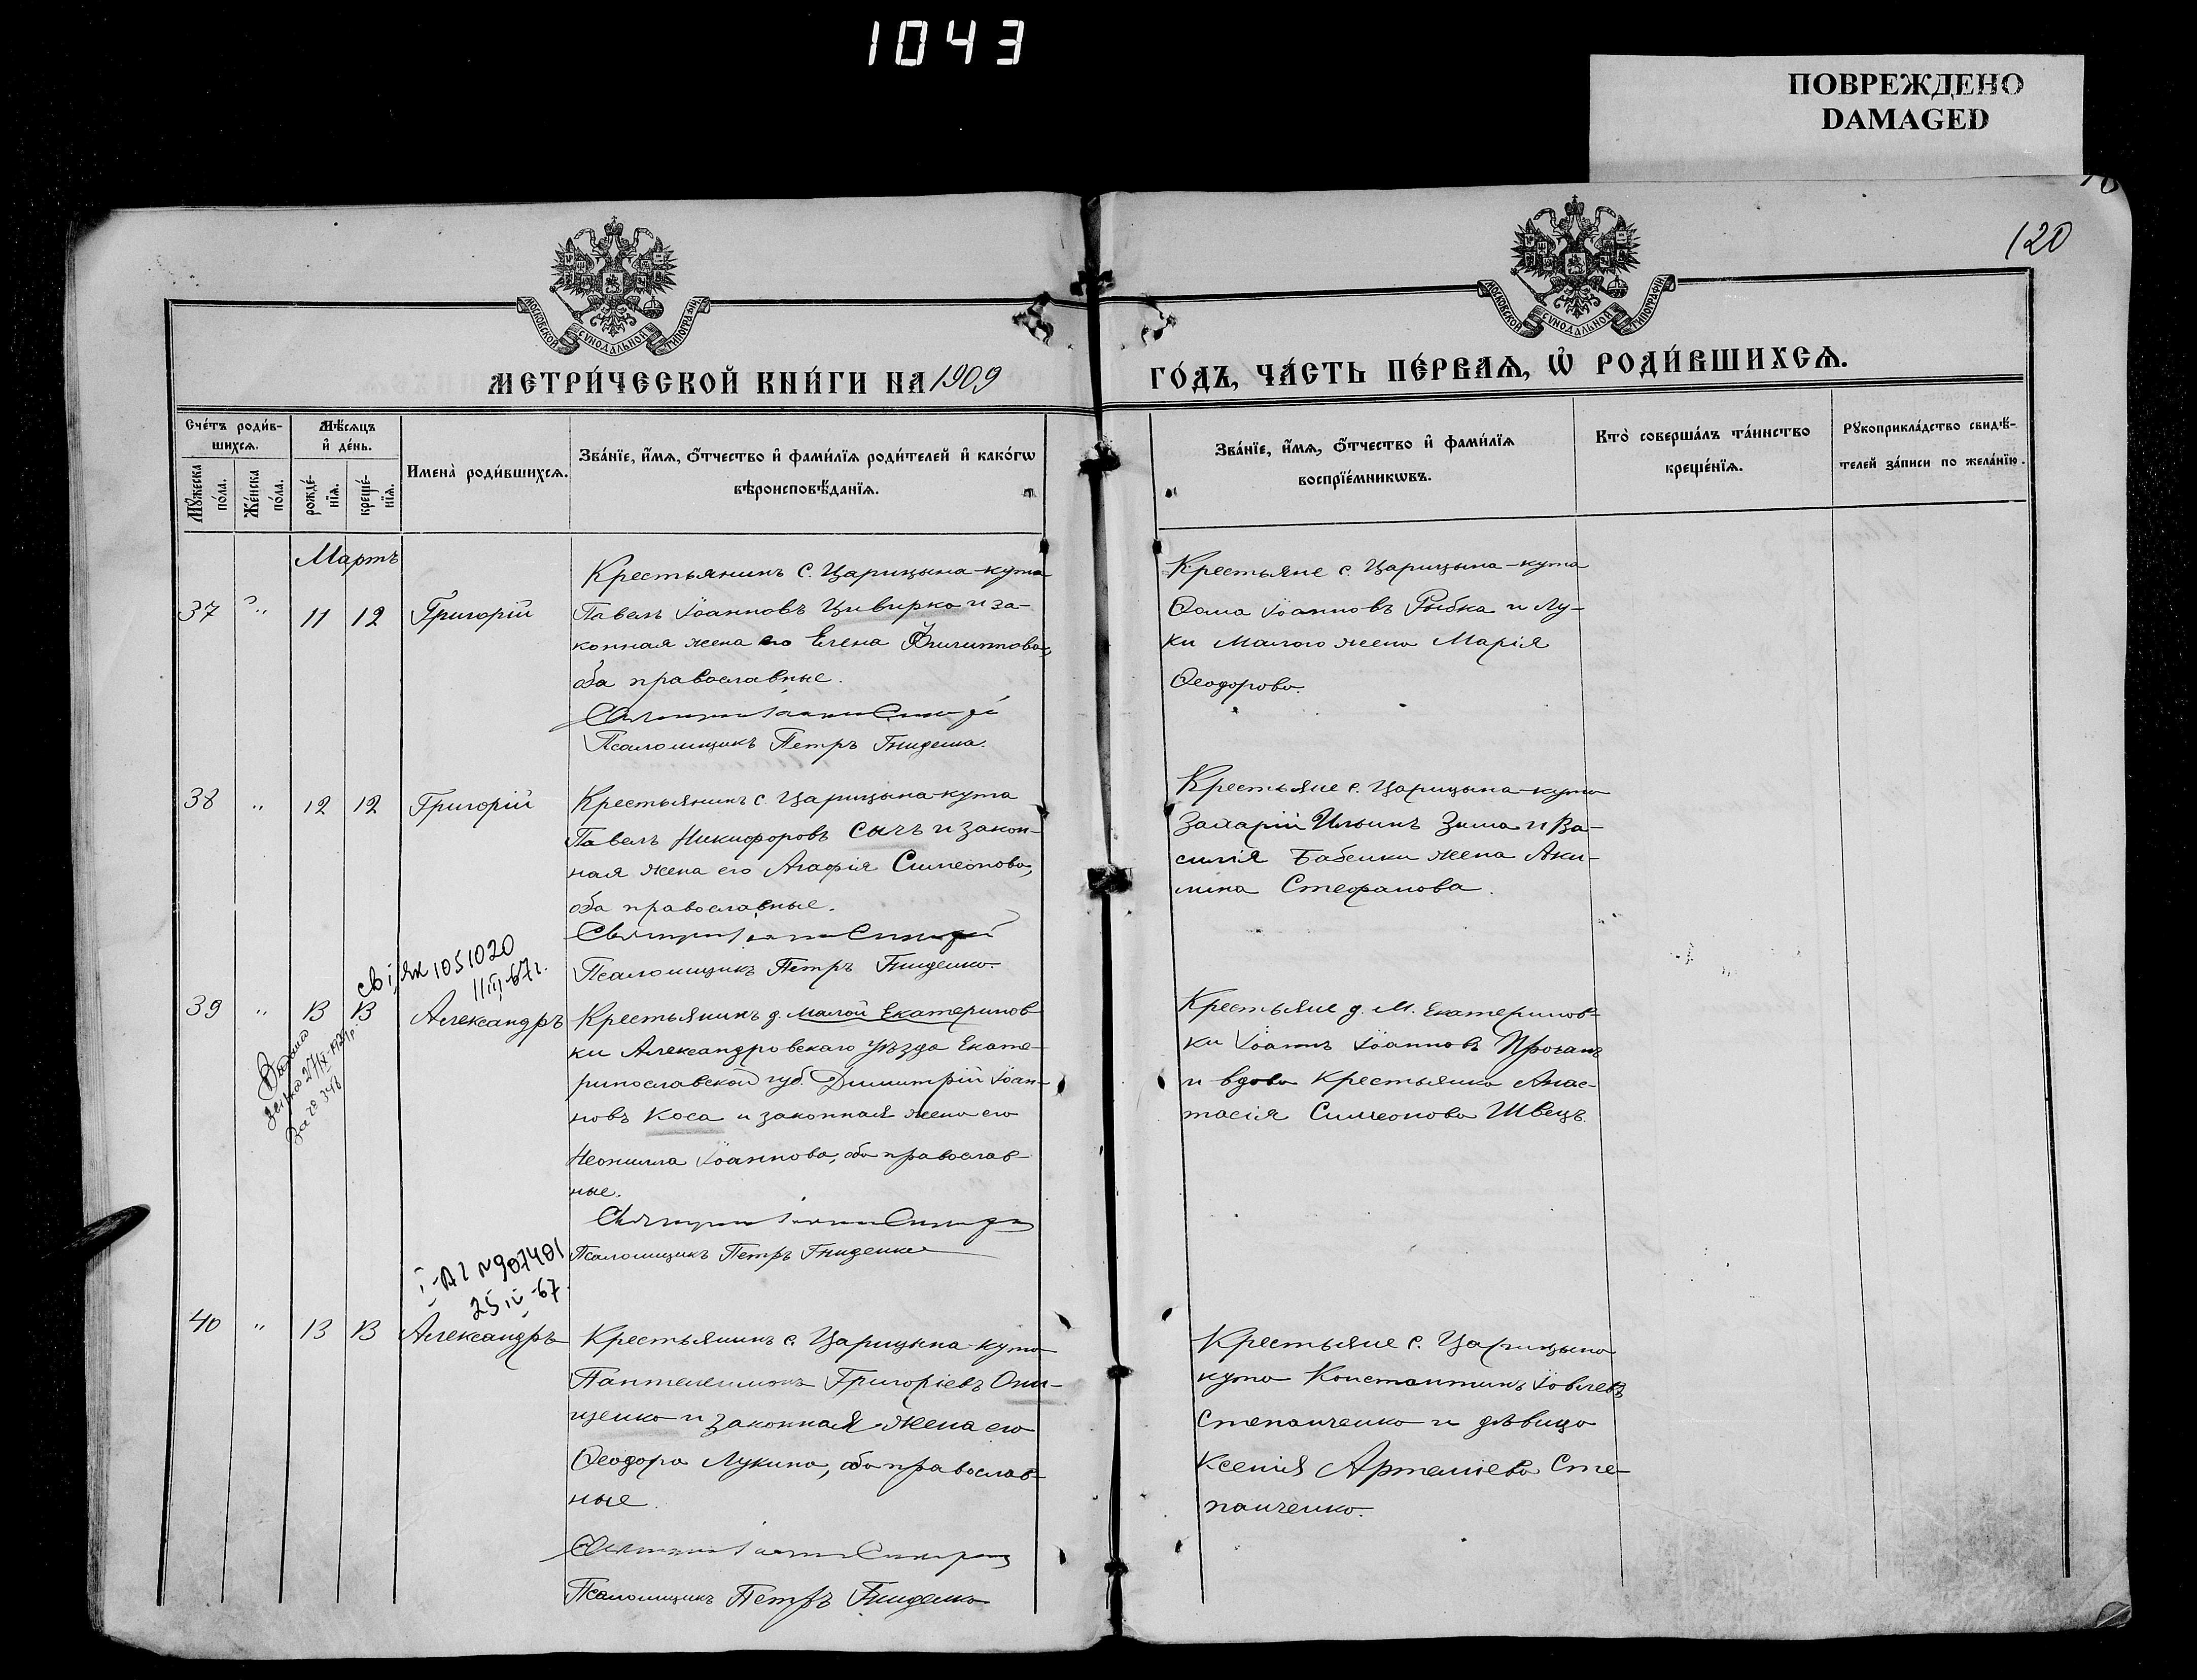 1043
ПОВРЕЖДЕНО
DAMAGED
120
МОСКОВСКОЙ СѴНОДАЛЬНОЙ ТИПОГРАФІИ
МОСКОВСКОЙ СѴНОДАЛЬНОЙ ТИПОГРАФІИ
МЕТРИ́ЧЕСКОЙ КНИ́ГИ НА 1909
ГО́ДЪ, ЧА́СТЬ ПЕ́РВАѦ, Ѡ҆ РОДИ́ВШИХСѦ.
Сче́тъ роди́в-
шихсѧ.
Мꙋ́жеска по́ла.
Же́нска по́ла.
Мѣ́сѧцъ
и҆ де́нь.
рожде́-нїѧ.
креще́-нїѧ.
Имена̀ роди́вшихсѧ.
Зва́нїе, и҆́мѧ, ѻ҆́тчество и҆ фами́лїѧ роди́телей и҆ како́гѡ
вѣроисповѣ́данїѧ.
Зва́нїе, и҆́мѧ, ѻ҆́тчество и҆ фами́лїѧ
воспрїе́мникѡвъ.
Кто̀ соверша́лъ та́инство
креще́нїѧ.
Рꙋкоприкла́дство свидѣ́-
телей за́писи по жела́нїю.
Мартъ
37 " 11 12 Григорій
Крестьянинъ с. Царицына-кута
Павелъ Іоанновъ Цивирко и за-
конная жена его Елена Филиппова,
оба православные.
Псаломщикъ Петръ Гниденко.
Крестьяне с. Царицына-кута
Ѳома Іоанновъ Рыбка и Лу-
ки Малого жена Марія
Ѳеодорова.
38 " 12 12 Григорій
Крестьянинъ с. Царицына-кута
Павелъ Никифоровъ Сычъ и закон-
ная жена его Агафія Симеонова,
оба православные.
Псаломщикъ Петръ Гниденко.
Крестьяне с. Царицына-кута
Захарій Ильинъ Зима и Ва-
силія Бабенки жена Аки-
лина Стефанова.
1051020
11 III 67 г.
39 " 13 13 Александръ
Крестьянинъ д. Малой Екатеринов-
ки Александровскаго уѣзда Екате-
ринославской губ. Димитрій Іоан-
новъ Коса и законная жена его
Неонилла Іоаннова, оба православ-
ные.
Псаломщикъ Петръ Гниденко
Крестьяне д. М. Екатеринов-
ки Іоаннъ Іоанновъ Проганъ
и вдова крестьянка Анас-
тасія Симеонова Швецъ.
907401
25 IV-67.
40 " 13 13 Александръ
Крестьянинъ с. Царицына кута
Пантелеимонъ Григоріевъ Они-
щенко и законная жена его
Ѳеодора Лукина, оба православ-
ные.
Псаломщикъ Петръ Гниденко
Крестьяне с. Царицына
кута Константинъ Іовлевъ
Степанченко и дѣвица
Ксенія Артеміева Сте-
панченко.